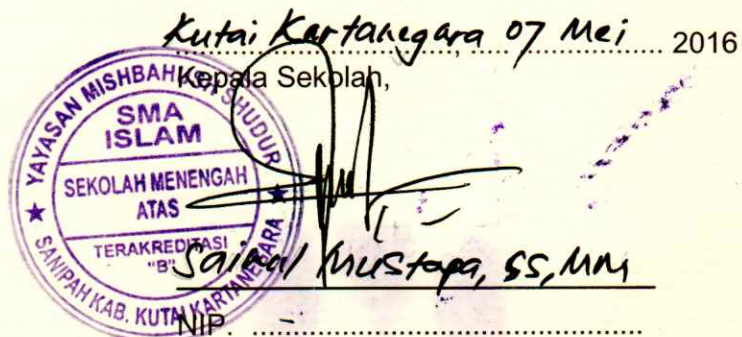 Kutai Kartanegara 07 Mei 2016
Kepala Sekolah,
YAYASAN MISHBAHUSH SHUDUR
SMA
ISLAM
SEKOLAH MENENGAH
ATAS
TERAKREDITASI
"B"
SANIPAH KAB. KUTAI KARTANEGARA
Mustapa, SS, MM
NIP.